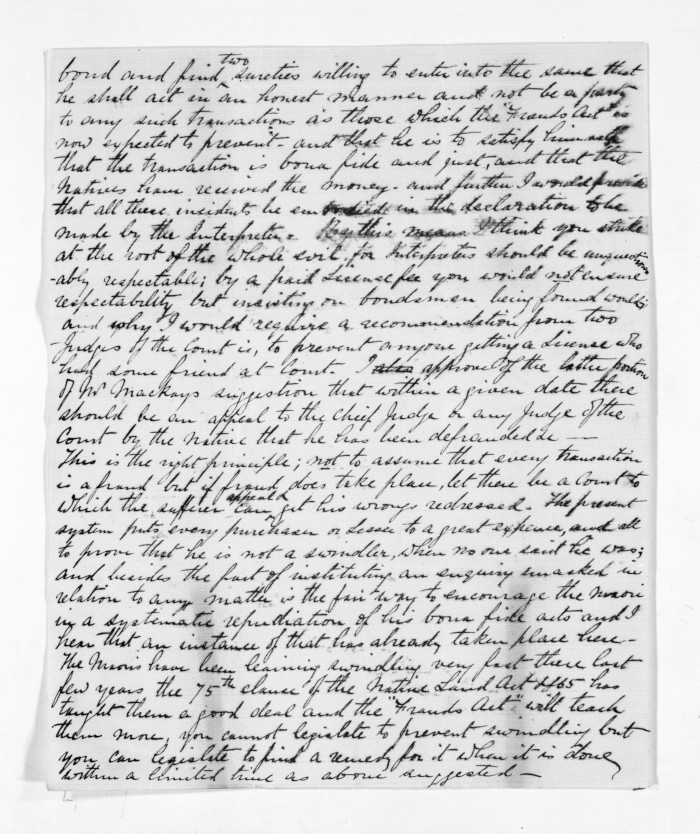 bond and find two sureties willing to enter into the same that
he shall act in an honest manner and not be a party
to any such transactions as those which the "Frauds Act" is
now expected to prevent - and that he is to satisfy himself
that the transaction is bona fide and just, and that the
Natives have received the money - and further I would provide
that all these incidents be embodied in the declaration to be
made by the Interpreter. this means I think you strike
at the root of the whole evil, for Interpreters should be unquestion
-ably respectable; by a paid License fee you would not ensure
respectability but insisting on bondsmen being found would;
and why I would require a recommendation from two
Judges of the Court is, to prevent anyone getting a License who
had some friend at Court. I also approve of the latter portion
of Mr Mackays suggestion that within a given date there
should be an appeal to the Chief Judge or any Judge of the
Court by the Native that he has been defrauded &c —
This is the right principle; not to assume that every transaction
is a fraud but if fraud does take place, let there be a Court to
which the sufferer can appeal & get his wrongs redressed. The present
system puts every purchaser or Lessee to a great expense, and all
to prove that he is not a swindler, when no one said he was;
and besides the fact of instituting an enquiry unasked in
relation to any matter is the fair way to encourage the Maori
in a systematic repudiation of his bona fide acts and I
hear that an instance of that has already taken place here -
The Maoris have been learning swindling very fast these last
few years the 75th clause of the Native Land Act 1865 has
taught them a good deal and the "Frauds Act" will teach
them more, you cannot legislate to prevent swindling but
you can legislate to find a remedy for it when it is done
within a limited time as above suggested -